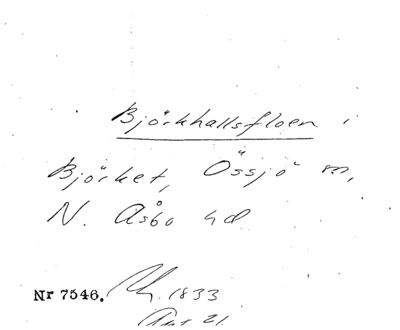 Björkhallsfloen i
Björket, Össjö sn,
N. Åsbo hd
Nr 7546. 1833